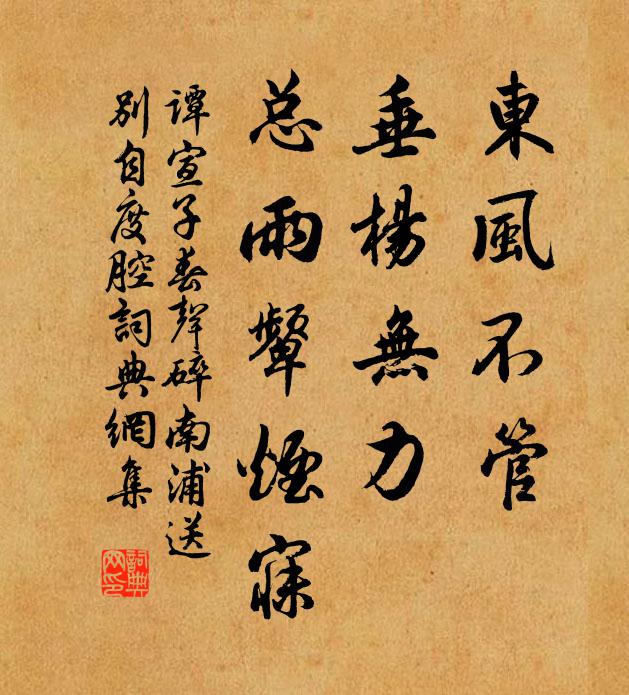 東風不管
垂楊無力
总雨顰煙寐
譚宣子春聲碎南浦送
別自度腔詞典網集
詞典网印